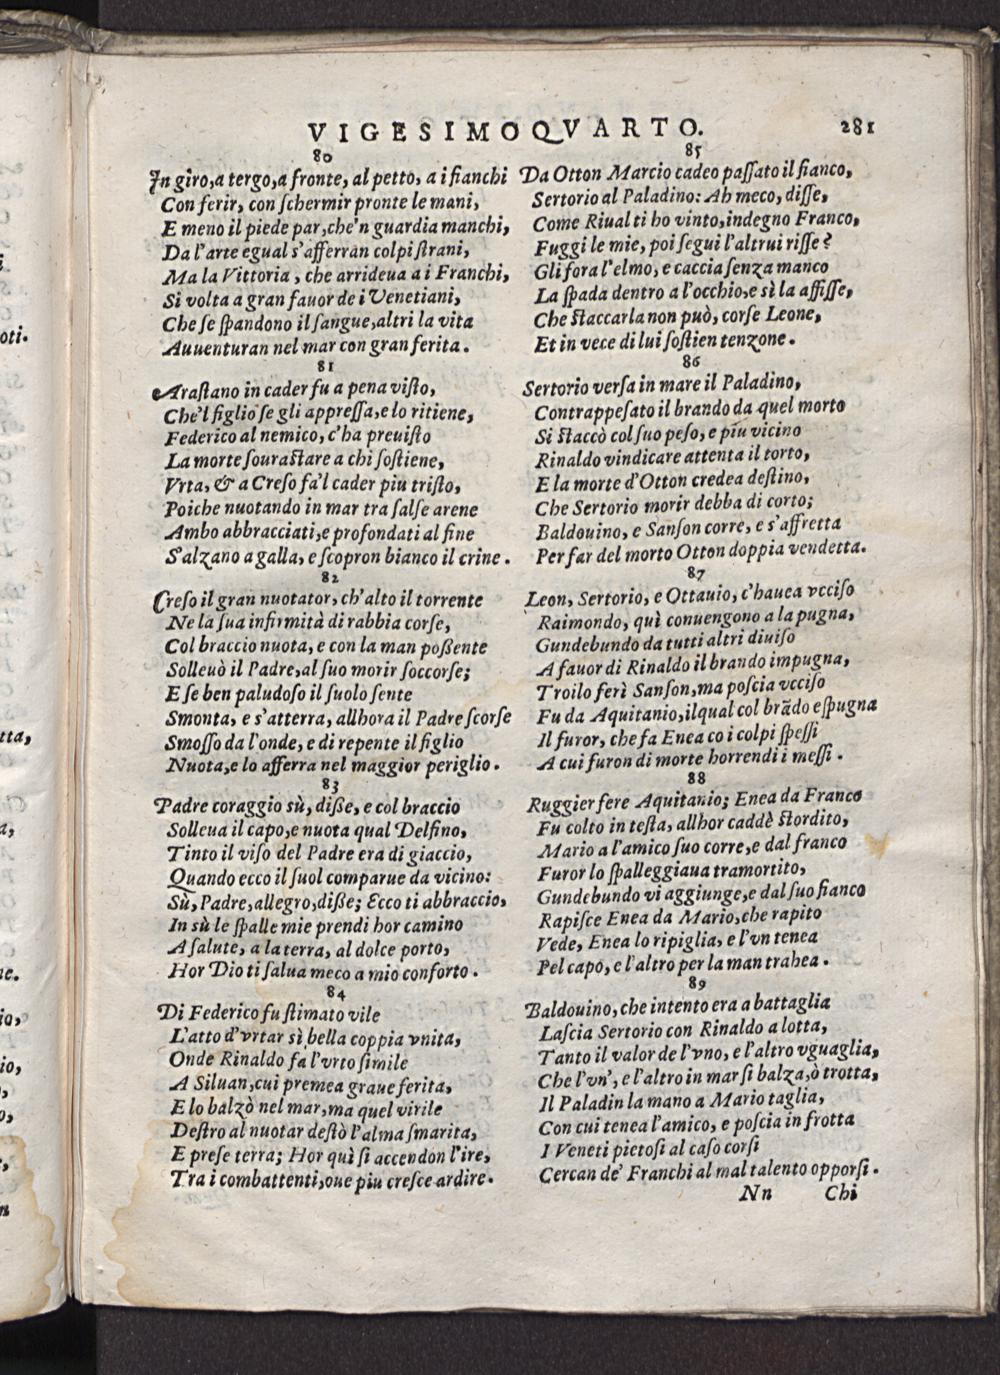 VIGESIMOQVARTO. 281
80
In giro, a tergo, a fronte, al petto, a i fianchi
Con ferir, con ſchermir pronte le mani,
E meno il piede par, che'n guardia manchi,
Da l'arte egual s'afferran colpi ſtrani,
Ma la Vittoria, che arrideua a i Franchi,
Si volta a gran fauor de i Venetiani,
Che ſe ſpandono il ſangue, altri la vita
Auuenturan nel mar con gran ferita.
81
Araſtano in cader fu a pena viſto,
Che'l figlio ſe gli appreſſa, e lo ritiene,
Federico al nemico, c'ha preuiſto
La morte ſouraſtare a chi ſoſtiene,
Vrta, & a Creſo fa'l cader piu triſto,
Poiche nuotando in mar tra ſalſe arene
Ambo abbracciati, e profondati al fine
S'alzano a galla, e ſcopron bianco il crine.
82
Creſo il gran nuotator, ch'alto il torrente
Ne la ſua infirmità di rabbia corſe,
Col braccio nuota, e con la man poßente
Solleuò il Padre, al ſuo morir ſoccorſe;
E ſe ben paludoſo il ſuolo ſente
Smonta, e s'atterra, allhora il Padre ſcorſe
Smoſſo da l'onde, e di repente il figlio
Nuota, e lo afferra nel maggior periglio.
83
Padre coraggio sù, diße, e col braccio
Solleua il capo, e nuota qual Delfino,
Tinto il viſo del Padre era di giaccio,
Quando ecco il ſuol comparue da vicino:
Sù, Padre, allegro, diße; Ecco ti abbraccio,
In sù le ſpalle mie prendi hor camino
A ſalute, a la terra, al dolce porto,
Hor Dio ti ſalua meco a mio conforto.
84
Di Federico fu ſtimato vile
L'atto d'vrtar sì bella coppia vnita,
Onde Rinaldo fa l'vrto ſimile
A Siluan, cui premea graue ferita,
E lo balzò nel mar, ma quel virile
Deſtro al nuotar deſtò l'alma ſmarita,
E preſe terra; Hor quì ſi accendon l'ire,
Tra i combattenti, oue piu creſce ardire.
85
Da Otton Marcio cadeo paſſato il fianco,
Sertorio al Paladino: Ah meco, diſſe,
Come Riual ti ho vinto, indegno Franco,
Fuggi le mie, poi ſegui l'altrui riſſe?
Gli fora l'elmo, e caccia ſenza manco
La ſpada dentro a l'occhio, e sì la affiſſe,
Che ſtaccarla non può, corſe Leone,
Et in vece di lui ſoſtien tenzone.
86
Sertorio verſa in mare il Paladino,
Contrappeſato il brando da quel morto
Si ſtaccò col ſuo peſo, e piu vicino
Rinaldo vindicare attenta il torto,
E la morte d'Otton credea deſtino,
Che Sertorio morir debba di corto;
Baldouino, e Sanſon corre, e s'affretta
Per far del morto Otton doppia vendetta.
87
Leon, Sertorio, e Ottauio, c'hauea vcciſo
Raimondo, quì conuengono a la pugna,
Gundebundo da tutti altri diuiſo
A fauor di Rinaldo il brando impugna,
Troilo ferì Sanſon, ma poſcia vcciſo
Fu da Aquitanio, il qual col brãdo eſpugna
Il furor, che fa Enea co i colpi ſpeſſi
A cui furon di morte horrendi i meſſi.
88
Ruggier fere Aquitanio; Enea da Franco
Fu colto in teſta, allhor caddè ſtordito,
Mario a l'amico ſuo corre, e dal franco
Furor lo ſpalleggiaua tramortito,
Gundebundo vi aggiunge, e dal ſuo fianco
Rapiſce Enea da Mario, che rapito
Vede, Enea lo ripiglia, e l'vn tenea
Pel capo, e l'altro per la man trahea.
89
Baldouino, che intento era a battaglia
Laſcia Sertorio con Rinaldo a lotta,
Tanto il valor de l'vno, e l'altro vguaglia,
Che l'vn', e l'altro in mar ſi balza, ò trotta,
Il Paladin la mano a Mario taglia,
Con cui tenea l'amico, e poſcia in frotta
I Veneti pietoſi al caſo corſi
Cercan de' Franchi al mal talento opporſi.
Nn Chi